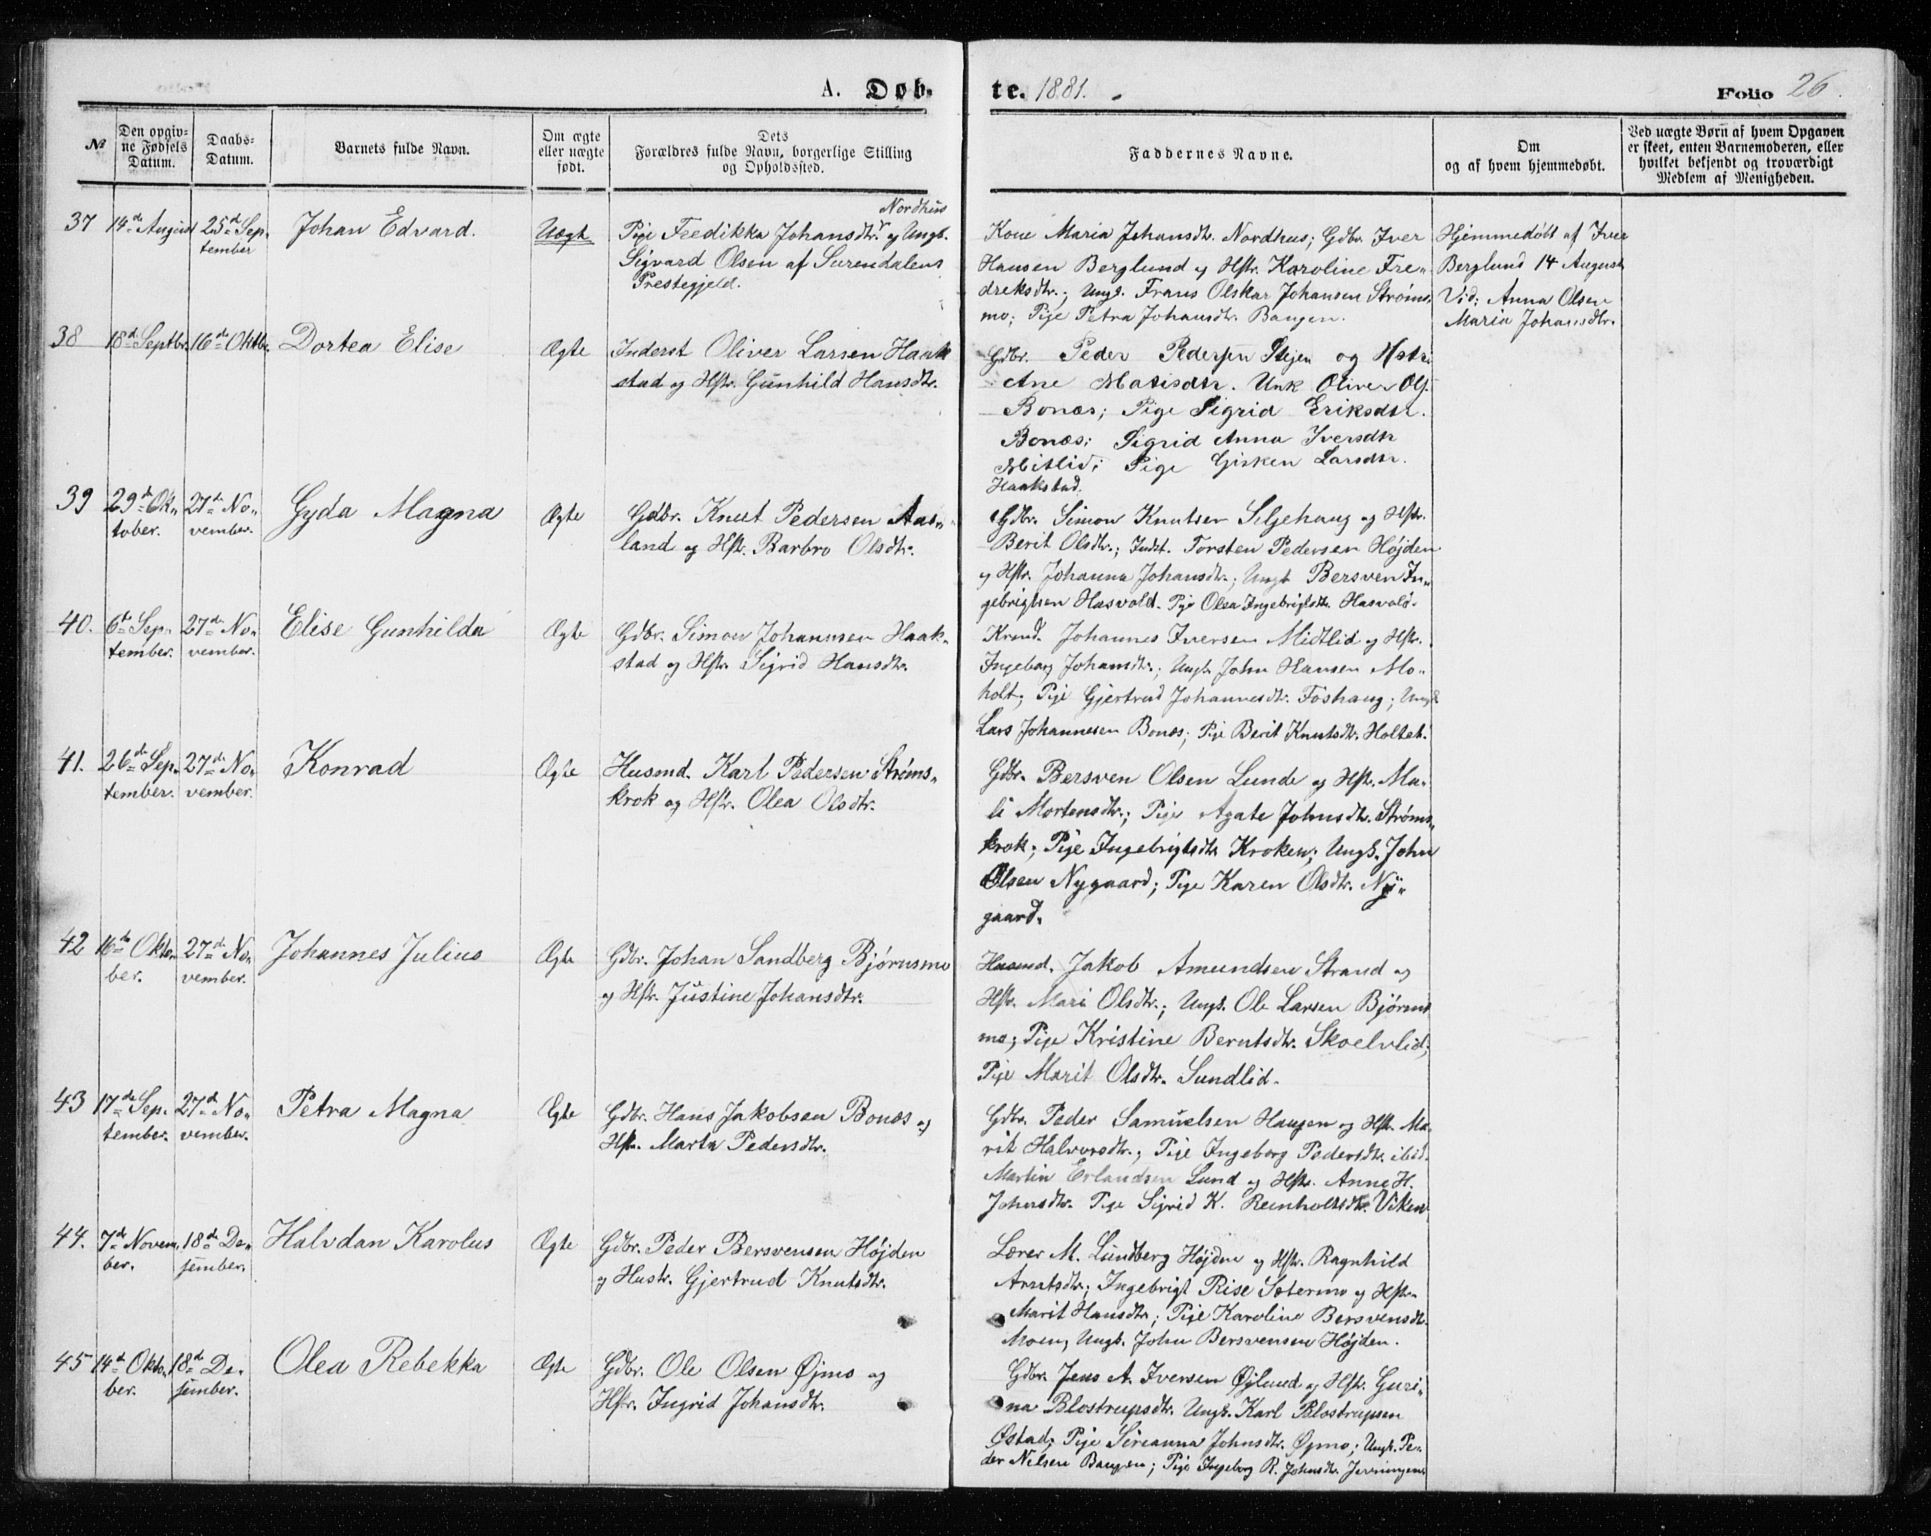 A. Døb-te. 1881.
Folio 26.
№
Den opgiv-
ne Fødsels
Datum.
Daabs-
Datum.
Barnets fulde Navn.
Om ægte
eller uægte
født.
Dets
Forældres fulde Navn, borgerlige Stilling
og Opholdssted.
Faddernes Navne.
Om
og af hvem hjemmedøbt.
Ved uægte Børn af hvem Opgaven
er skeet, enten Barnemoderen, eller
hvilket bekjendt og troværdigt
Medlem af Menigheden.
37 14de August 25de Sep-
tember
Johan Edvard.
Uægt
Nordhus
Pige Fredikka Johansdtr. og Ungk.
Sigvard Olsen af Surendalens
Prestegjeld.
Kone Maria Johansdtr. Nordhus; Gdbr. Iver
Hansen Berglund og Hstr. Karoline Fre-
dreksdtr.; Ungk. Frans Olskar Johansen Strøms-
mo; Pige Petra Johansdtr. Baugen.
Hjemmedøbt af Iver
Berglund 14 August
Vid: Anna Olsen
Maria Johansdtr.
38 18de Septbr. 16de Oktbr.
Dortea Elise
Ægte
Inderst Oliver Larsen Haak-
stad og Hstr. Gunhild Hansdtr.
Gdbr. Peder Pedersen Stejen og Hstr.
Ane Matisdtr. Unk Oliver Ols.
Bonæs; Pige Sigrid Eriksdtr.
Bonæs; Sigrid Anna Iversdtr
Mitlid; Pige Gisken Larsdtr.
Haakstad.
39 29de Ok-
tober. 27de No-
vember.
Gyda Magna
Ægte
Gdbr. Knut Pedersen Aas-
land og Hstr. Barbro Olsdtr.
Gdbr. Simon Knutsen Siljehaug og Hstr.
Berit Olsdtr.; Indst. Torsten Pedersen Højden
og Hstr. Johanna Johansdtr.; Ungk Bersven In-
gebrigtsen Hasvold. Pige Olea Ingebrigtsdtr. Hasvold.
40. 6te Sep-
tember. 27de No-
vember.
Elise Gunhilda
Ægte
Gdbr. Simon Johannsen Haak-
stad og Hstr. Sigrid Hansdtr.
Johannes Iversen Midtlid og Hstr.
Ingeborg Johansdtr.; Ungk John Hansen Mo-
holt; Pige Gjertrud Johannesdtr. Foshaug; Ungk
Lars Johannesen Bonæs; Pige Berit Knutsdtr. Holtet.
41. 26de Sep-
tember. 27de No-
vember.
Konrad
Ægte
Husmd. Karl Pedersen Strøms-
krok og Hstr. Olea Olsdtr.
Gdbr. Bersven Olsen Lunde og Hstr. Ma-
li Mortensdtr.; Pige Agate Johnsdtr. Strøms-
krok; Pige Ingebrigtsdtr Kroken; Ungk. John
Olsen Nygaard; Pige Karen Olsdtr. Ny-
gaard.
42 16de Okto-
ber. 27de No-
vember.
Johannes Julius
Ægte
Gdbr. Johan Sandberg Bjørnsmo
og Hstr. Justine Johansdtr.
Husmd. Jakob Amundsen Strand og
Hstr. Mari Olsdtr.; Ungk. Ole Larsen Bjørns
mo; Pige Kristine Berntsdtr. Skoelvlid;
Pige Marit Olsdtr. Sundlid.
43 17de Sep-
tember. 27de No-
vember.
Petra Magna
Ægte
Gdbr. Hans Jakobsen Bonæs og
Hstr. Marta Pedersdtr.
Gdbr. Peder Samuelsen Haugen og Hstr. Ma-
rit Halvorsdtr.; Pige Ingeborg Pedersdtr. ibid.
Martin Erlandsen Lund og Hstr. Anne H.
Johnsdtr. Pige Sigrid K. Reinholtsdtr. Viken
44. 7de Novem-
ber. 18de De-
sember.
Halvdan Karolus
Ægte
Gdbr. Peder Bersvensen Højden
og Hustr. Gjertrud Knutsdtr.
Lærer M. Lundberg Højden og Hstr. Ragnhild
Arntsdtr.; Ingebrigt Rise Sætermo og Hstr.
Marit Hansdtr; Pige Karoline Bersvensdtr.
Moen; Ungk. John Bersvensen Højden.
45 14de Okto-
ber. 18de De-
sember.
Olea Rebekka
Ægte
Gdbr. Ole Olsen Øjmo og
Hstr. Ingrid Johansdtr.
Gdbr. Jens A. Iversen Øjlund og Hstr. Guri-
na Blostrupsdtr. Ungk. Karl Blostrupsen
Østad; Pige Sirianna Johnsdtr. Øjmo; Ungk. Pe-
der Nilsen Baugen; Pige Ingeborg R. Johnsdtr.